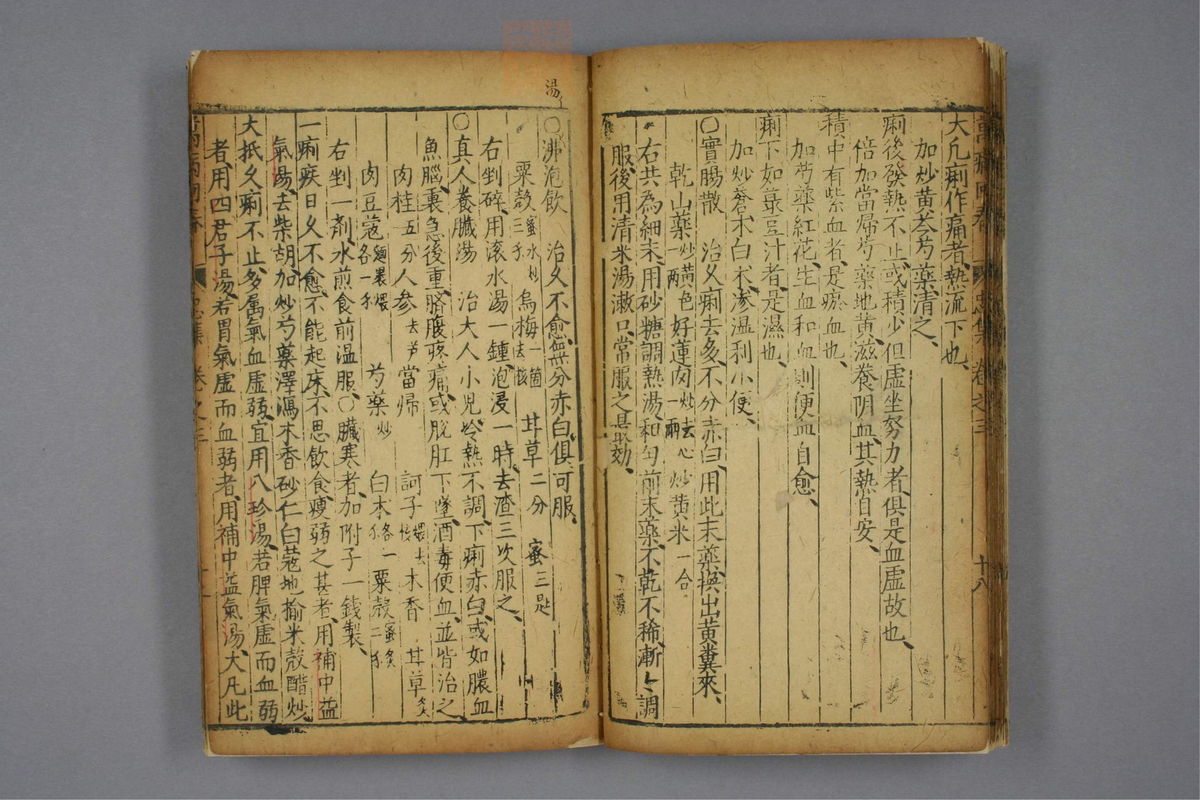 大凡痢作痛者熱流下也
加炒黃芩芍藥清之
痢後發熱不止或積少但虛坐努力者俱是血虛故也
倍加當歸芍藥地黃滋養阴血其熱自安
積中有紫血者是瘀血也
加芍藥紅花生血和血則便血自愈
痢下如荳豆汁者是濕也
加炒蒼木白朮滲溫利小便
○實腸散 治久痢去多不分赤白用此末藥換出黃糞來
乾山藥炒黃色一兩 好蓮肉炒去心一兩 炒黃米一合
右共為細末用砂糖調熱湯和勻前末藥不乾不稀漸々調
服後用清米湯漱口常服之最効
萬病回春 忠集 卷之三 十八
湯
○沸泡飲 治久不愈無分赤白俱可服
粟殼蜜水炒三釆 烏梅一箇去核 甘草二分 蜜三匙
右剉碎用滾水湯一鍾泡浸一時去渣三次服之
○真人養臟湯 治大人小児冷熱不調下痢赤白或如膿血
魚腦裏急後重臍腹疼痛或脫肛下墜酒毒便血並皆治之
肉桂五分 人參去芦 當歸 訶子煨去核 木香 甘草炙
肉豆蔻麵裹煨各一釆 芍藥炒 白朮各一釆 粟殼蜜炙二釆
右剉一剤水煎食前温服○臟寒者加附子一錢製
一痢疾日久不愈不能起床不思飲食瘦弱之甚者用補中益
氣湯去柴胡加炒芍藥澤瀉木香砂仁白蔻地榆米殼醋炒
大抵久痢不止多属氣血虛弱宜用八珍湯若脾氣虛而血弱
者用四君子湯若胃氣虛而血弱者用補中益氣湯大凡此
萬病回春 忠集 卷之三